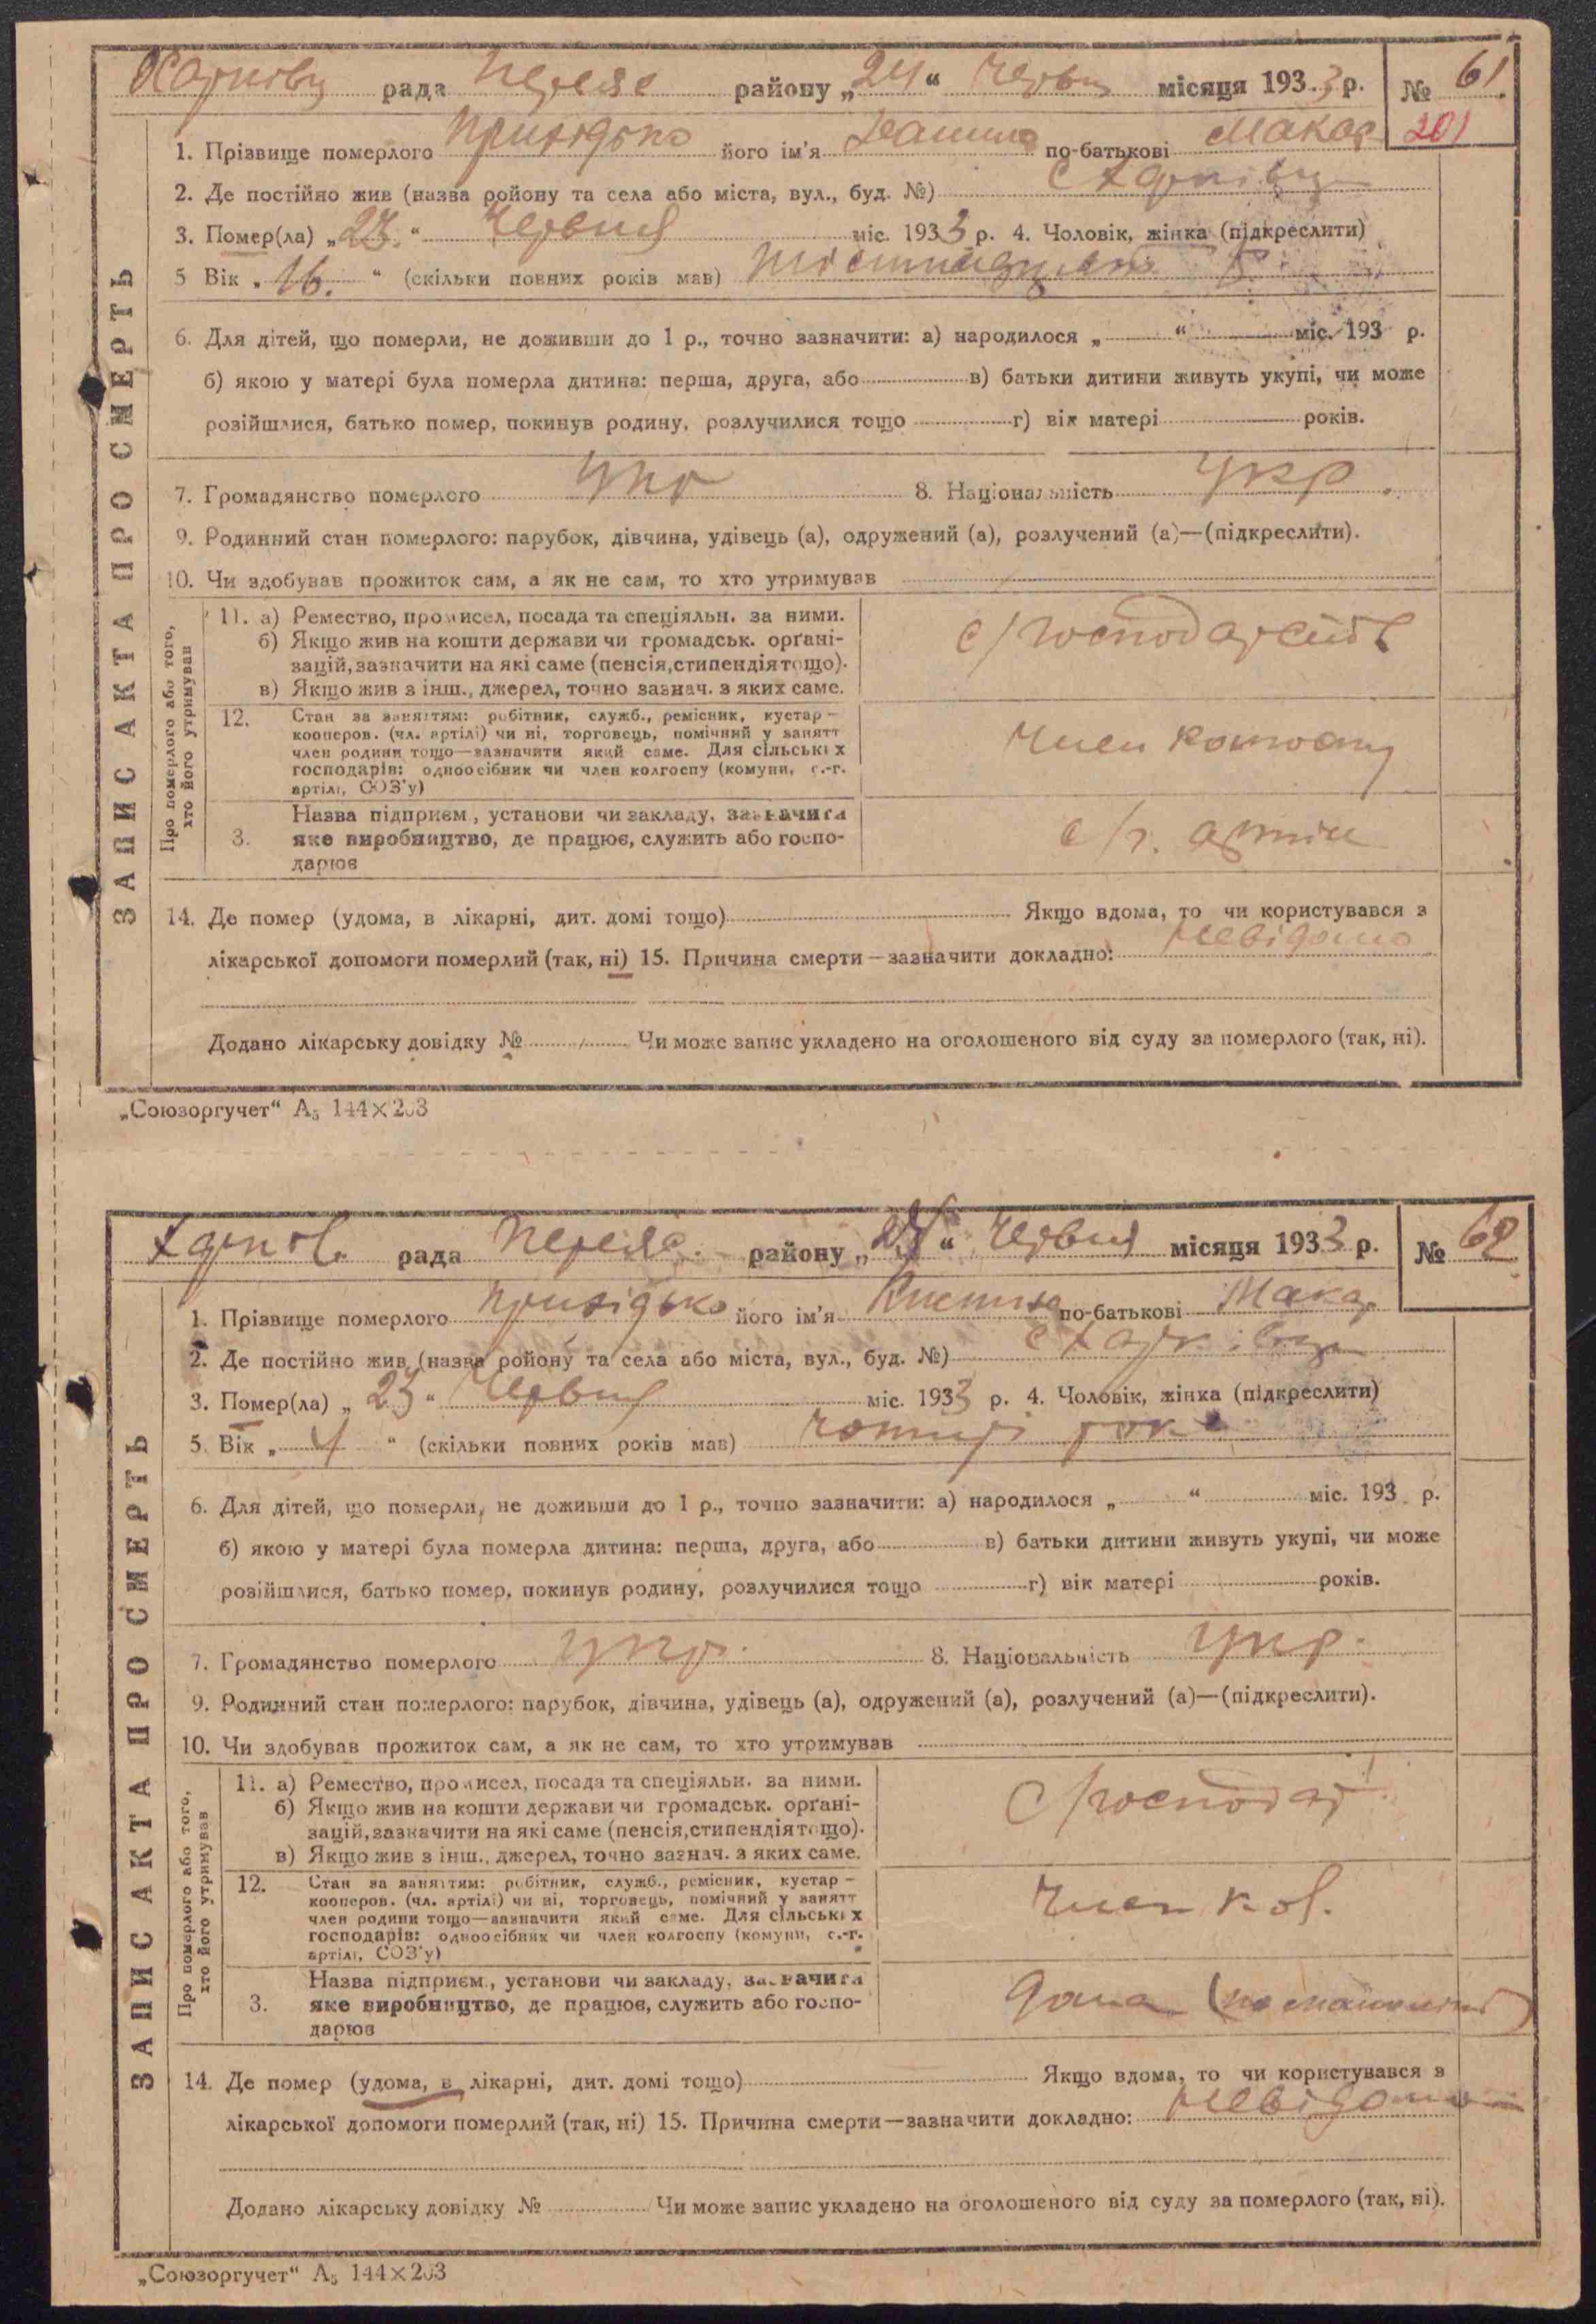 Харківц рада Переяс району „24“ Червц місяця 1933 р. № 61
201
1. Прізвище померлого Приходько його ім'я по-батькові Макар
2. Де постійно жив (назва ройону та села або міста, вул., буд. №) с Харківці
3. Помер(ла) „23“ Червня міс. 1933 р. 4. Чоловік, жінка (підкреслити)
5 Вік „16.“ (скільки повних років мав) шістнадцять
6. Для дітей, що померли, не доживши до 1 р., точно зазначити: а) народилося „ “ міс. 193 р.
б) якою у матері була померла дитина: перша, друга, або в) батьки дитини живуть укупі, чи може
розійшлися, батько помер, покинув родину, розлучилися тощо г) вік матері років.
7. Громадянство померлого укр 8. Національність Укр.
9. Родинний стан померлого: парубок, дівчина, удівець (а), одружений (а), розлучений (а)—(підкреслити).
10. Чи здобував прожиток сам, а як не сам, то хто утримував
Про померлого або того,
хто його утримував
11. а) Ремество, промисел, посада та спеціяльн. за ними.
б) Якщо жив на кошти держави чи громадськ. орґані-
зацій, зазначити на які саме (пенсія, стипендія тощо).
в) Якщо жив з інш., джерел, точно зазнач. з яких саме.
с/господарство
12. Стан за заняттям: робітник, служб., ремісник, кустар—
кооперов. (чл. артілі) чи ні, торговець, помічний у занятт
член родини тощо—зазначити який саме. Для сільських
господарів: одноосібник чи член колгоспу (комуни, с.-г.
артілі, СОЗ'у)
член колгоспу
3. Назва підприєм., установи чи закладу, зазначити
яке виробництво, де працює, служить або госпо-
дарює
с/г. артіль
14. Де помер (удома, в лікарні, дит. домі тощо) Якщо вдома, то чи користувався з
лікарської допомоги померлий (так, ні) 15. Причина смерти—зазначити докладно: невідомо
Додано лікарську довідку № Чи може запис укладено на оголошеного від суду за померлого (так, ні).
ЗАПИС АКТА ПРО СМЕРТЬ
„Союзоргучет“ А₅ 144×203
Харков. рада Переяс. району „24“ Червня місяця 1933 р. № 62
1. Прізвище померлого Приходько його ім'я по-батькові Макар
2. Де постійно жив (назва ройону та села або міста, вул., буд. №) с Харківці
3. Помер(ла) „23“ Червня міс. 1933 р. 4. Чоловік, жінка (підкреслити)
5. Вік „4“ (скільки повних років мав) чотирі роки
6. Для дітей, що померли, не доживши до 1 р., точно зазначити: а) народилося „ “ міс. 193 р.
б) якою у матері була померла дитина: перша, друга, або в) батьки дитини живуть укупі, чи може
розійшлися, батько помер, покинув родину, розлучилися тощо г) вік матері років.
7. Громадянство померлого укр. 8. Національність Укр.
9. Родинний стан померлого: парубок, дівчина, удівець (а), одружений (а), розлучений (а)—(підкреслити).
10. Чи здобував прожиток сам, а як не сам, то хто утримував
Про померлого або того,
хто його утримував
11. а) Ремество, промисел, посада та спеціяльн. за ними.
б) Якщо жив на кошти держави чи громадськ. орґані-
зацій, зазначити на які саме (пенсія, стипендія тощо).
в) Якщо жив з інш., джерел, точно зазнач. з яких саме.
с/господар.
12. Стан за заняттям: робітник, служб., ремісник, кустар—
кооперов. (чл. артілі) чи ні, торговець, помічний у занятт
член родини тощо—зазначити який саме. Для сільських
господарів: одноосібник чи член колгоспу (комуни, с.-г.
артілі, СОЗ'у)
член
3. Назва підприєм., установи чи закладу, зазначити
яке виробництво, де працює, служить або госпо-
дарює
дома
14. Де помер (удома, в лікарні, дит. домі тощо) Якщо вдома, то чи користувався з
лікарської допомоги померлий (так, ні) 15. Причина смерти—зазначити докладно: Невідомо
Додано лікарську довідку № Чи може запис укладено на оголошеного від суду за померлого (так, ні).
ЗАПИС АКТА ПРО СМЕРТЬ
„Союзоргучет“ А₅ 144×203